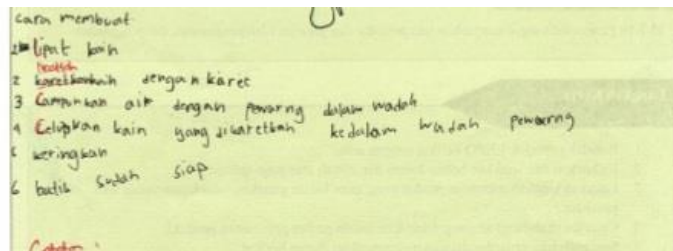 cara membuat
1 lipat kain
2 dengan karet
3 Campurkan air dengan pewarng dalam wadah
4 Celupkan kain yang dikaretkan kedalam wadah pewarng
5 keringkan
6 batik sudah siap